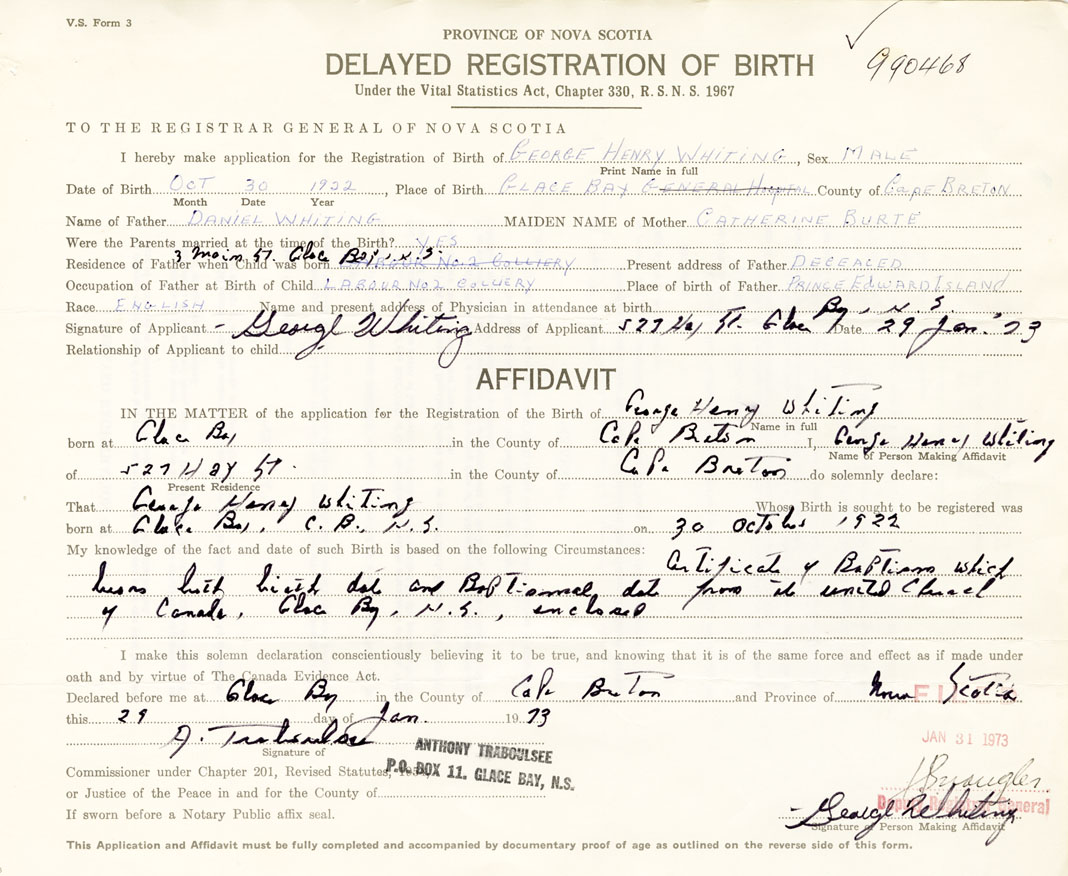 V.S. Form 3
PROVINCE OF NOVA SCOTIA
990468
DELAYED REGISTRATION OF BIRTH
Under the Vital Statistics Act, Chapter 330, R.S.N.S. 1967
TO THE REGISTRAR GENERAL OF NOVA SCOTIA
I hereby make application for the Registration of Birth of GEORGE HENRY WHITING, Sex MALE
Print Name in full
Date of Birth OCT 30 1922, Place of Birth GLACE BAY GENERAL Hospital County of CAPE BRETON
Month Date Year
Name of Father DANIEL WHITING MAIDEN NAME of Mother CATHERINE BURTE
Were the Parents married at the time of the Birth? YES
3 Main St. Glace Bay, N.S.
Residence of Father when Child was born LABOUR No.2 COLLIERY Present address of Father DECEACED
Occupation of Father at Birth of Child LABOUR No2 COLLIERY Place of birth of Father PRINCE EDWARD ISLAND
Race ENGLISH Name and present address of Physician in attendance at birth
Signature of Applicant - George Whiting Address of Applicant 527 Hay St. Glace Bay, N.S. Date 29 Jan. '73
Relationship of Applicant to child
AFFIDAVIT
IN THE MATTER of the application for the Registration of the Birth of George Henry Whiting
Name in full
born at Glace Bay in the County of Cape Breton I, George Henry Whiting
Name of Person Making Affidavit
of 527 Hay St. in the County of Cape Breton do solemnly declare:
Present Residence
That George Henry Whiting Whose Birth is sought to be registered was
born at Glace Bay, C.B., N.S. on 30 October 1922
My knowledge of the fact and date of such Birth is based on the following Circumstances: Certificate of Baptism which
bears both birth date and Baptismal date from the United Church
of Canada, Glace Bay, N.S., enclosed
I make this solemn declaration conscientiously believing it to be true, and knowing that it is of the same force and effect as if made under
oath and by virtue of The Canada Evidence Act.
Declared before me at Glace Bay in the County of Cape Breton and Province of Nova Scotia
this 29 day of Jan. 1973
JAN 31 1973
A. Traboulsee
Signature of
ANTHONY TRABOULSEE
P.O. BOX 11. GLACE BAY, N.S.
Commissioner under Chapter 201, Revised Statutes,
or Justice of the Peace in and for the County of
Deputy Registrar General
If sworn before a Notary Public affix seal.
- George Whiting
Signature of Person Making Affidavit
This Application and Affidavit must be fully completed and accompanied by documentary proof of age as outlined on the reverse side of this form.